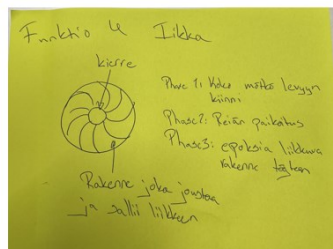 Funktio 4 Iikka
kierre
Phase 1: Koko mötkö levyyn
kiinni
Phase2: Reiän paikatus
Phase3: epoksia liikkuva
rakenne
Rakenne joka joustaa
ja sallii liikkeen